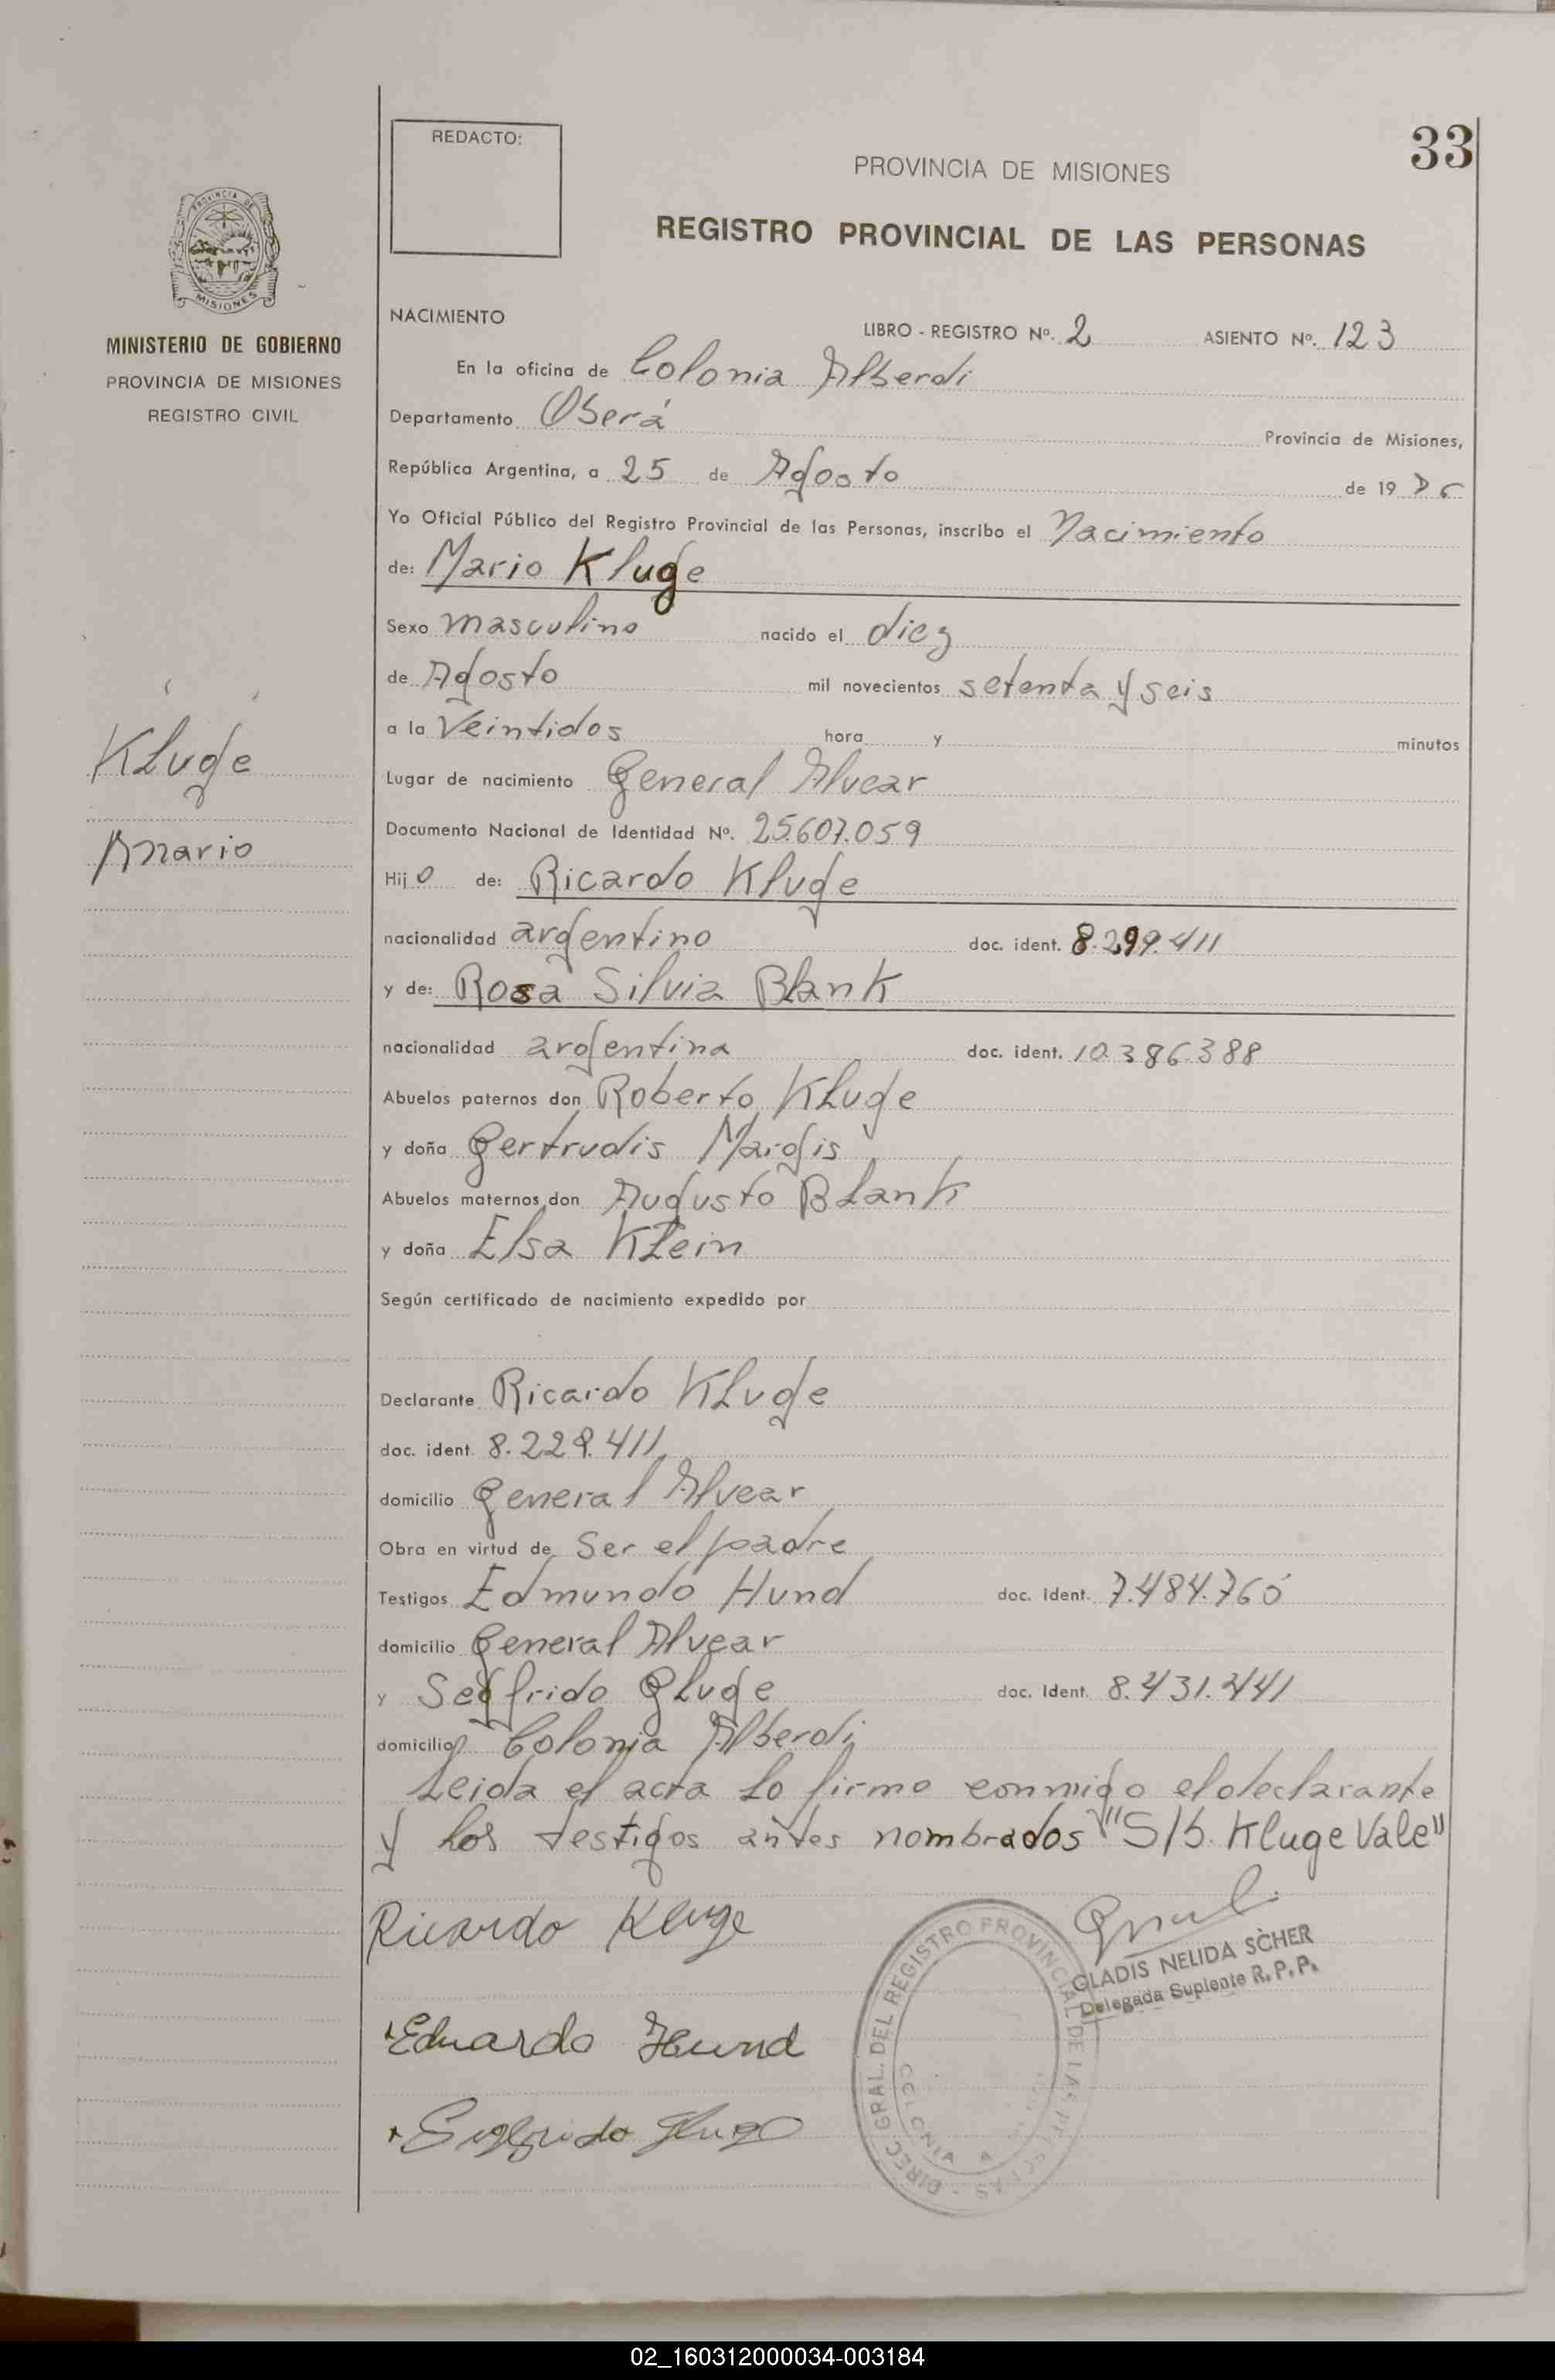 33
REDACTO:
PROVINCIA DE MISIONES
REGISTRO PROVINCIAL DE LAS PERSONAS
MISIONES
MINISTERIO DE GOBIERNO
PROVINCIA DE MISIONES
REGISTRO CIVIL
NACIMIENTO
LIBRO - REGISTRO Nº. 2 ASIENTO Nº. 123
En la oficina de Colonia Alberdi
Departamento Oberá Provincia de Misiones,
República Argentina, a 25 de Agosto de 19 76
Yo Oficial Público del Registro Provincial de las Personas, inscribo el Nacimiento
de: Mario Kluge
Sexo masculino nacido el diez
de Agosto mil novecientos setenta y seis
a la Veintidos hora y minutos
Kluge
Lugar de nacimiento General Alvear
Documento Nacional de Identidad Nº. 25.607.059
Mario
Hijo de: Ricardo Kluge
nacionalidad argentino doc. ident. 8.299.411
y de: Rosa Silvia Blank
nacionalidad argentina doc. ident. 10.386.388
Abuelos paternos don Roberto Kluge
y doña Gertrudis Margis
Abuelos maternos don Augusto Blank
y doña Elsa Klein
Según certificado de nacimiento expedido por
Declarante Ricardo Kluge
doc. ident. 8.229.411
domicilio General Alvear
Obra en virtud de Ser el padre
Testigos Edmundo Hund doc. Ident. 7.484.760
domicilio General Alvear
y Segfrido Gluge doc. Ident. 8.431.441
domicilio Colonia Alberdi
Leida el acta lo firmo conmigo el declarante
y los testigos antes nombrados "S/b. Kluge Vale"
Ricardo Kluge
GLADIS NELIDA SCHER
Delegada Suplente R. P. P.
Eduardo Hund
DIREC. GRAL. DEL REGISTRO PROVINCIAL DE LAS PERSONAS
COLONIA A
02_160312000034-003184